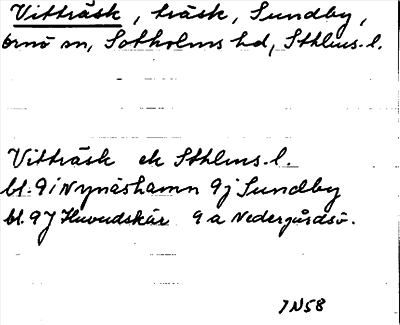 Vitträsk, träsk, Sundby,
Ornö sn, Sotholms hd, Sthlms. l.
Vitträsk ek Sthlms. l.
bl. 9 i Nynäshamn 9 j Sundby
bl. 9 J Huvudskär 9 a Nedergårdsö.
7N58